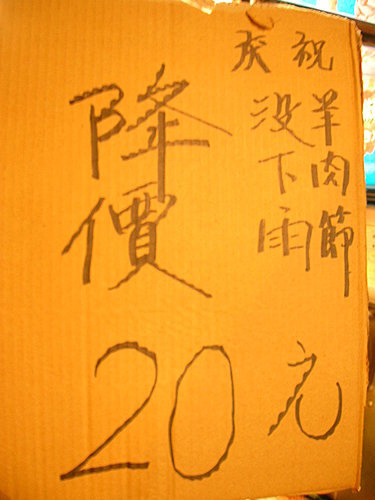 庆祝
羊肉節
没下雨
降價
20元